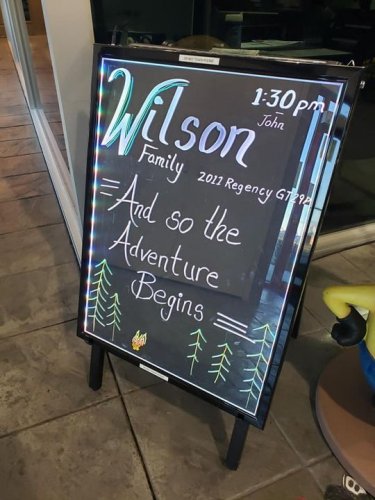 1:30pm
John
Wilson
Family
2011 Regency GT29
And so the
Adventure
Begins